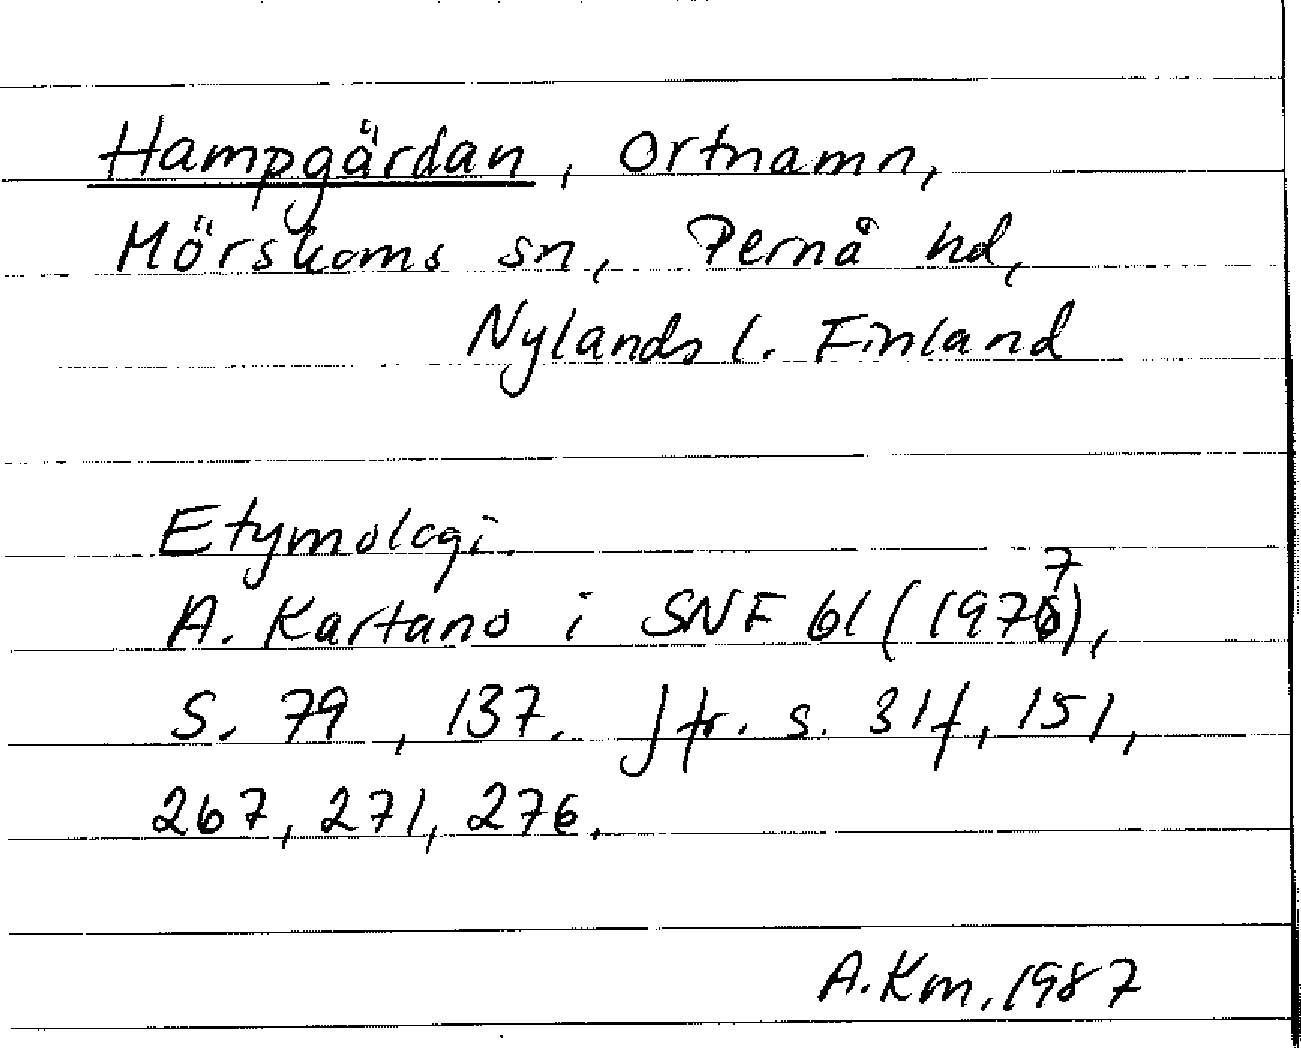 Hampgärdan, ortnamn,
Mörskoms sn, Pernå hd,
Nylands l. Finland
Etymologi.
A. Kartano i SNF 61 (1977),
S. 79, 137. Jfr. s. 31f, 151,
267, 271, 276.
A.Km, 1987